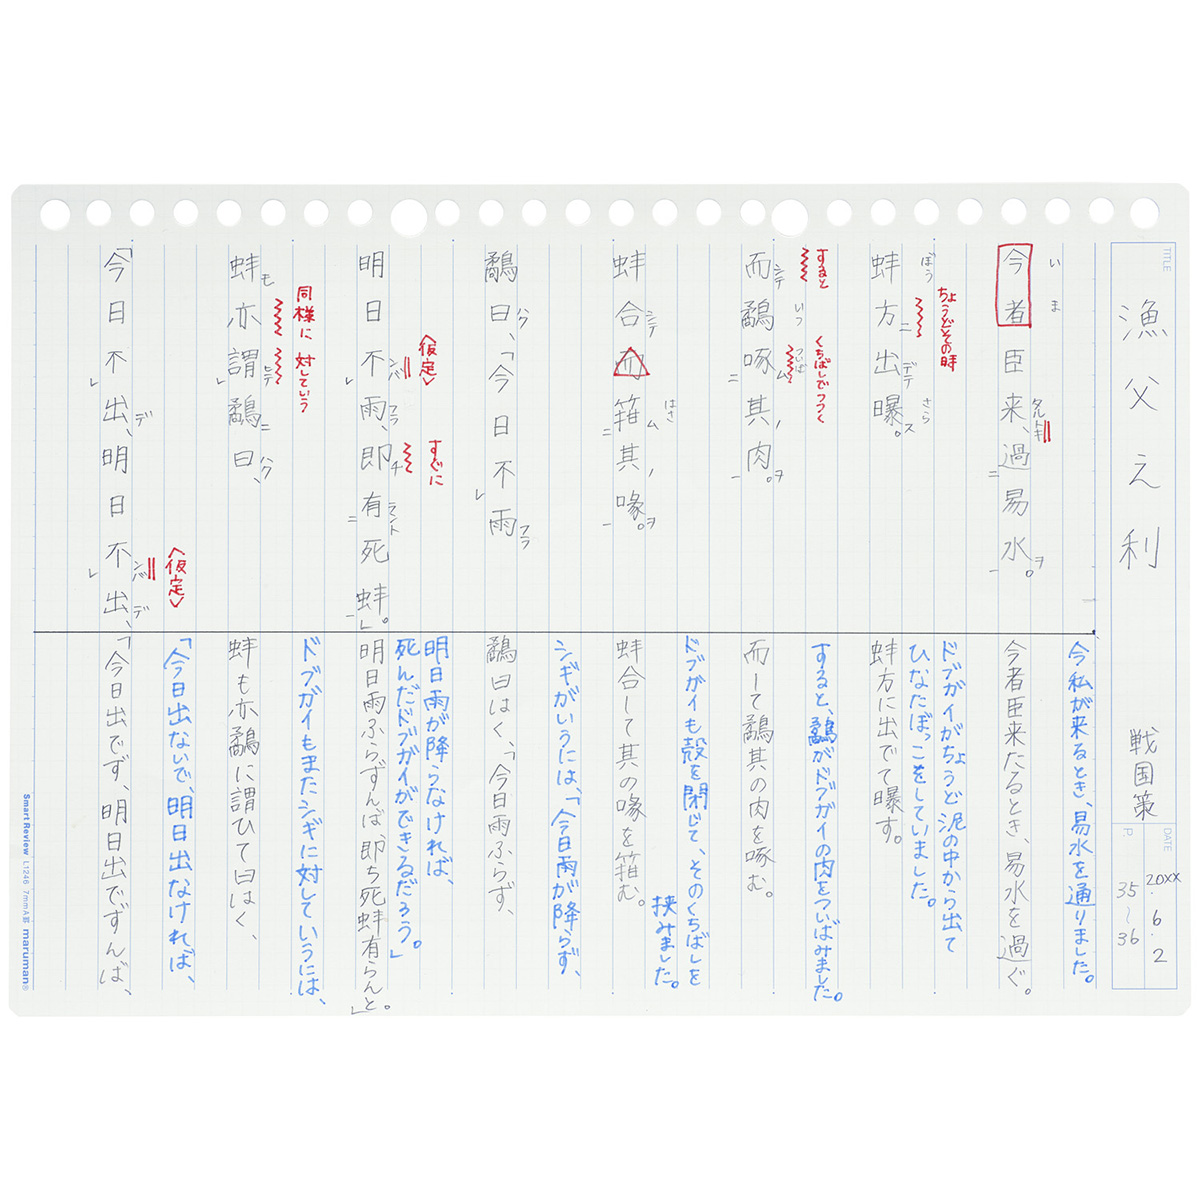 TITLE
漁父之利
戦国策
DATE
20XX・6・2
P.
35〜36
いま
今者臣来、過易水。
タルトキ
二
ヲ
一
今私が来るとき、易水を通りました。
今者臣来たるとき、易水を過ぐ。
ちょうどその時
ぼう
蚌方出曝。
ニ
デテ
さら
ス
ドブガイがちょうど泥の中から出て
ひなたぼっこをしていました。
蚌方に出でて曝す。
すると
くちばしでつつく
いつ
ついば
而鷸啄其肉。
シテ
ム
ノ
ヲ
二
一
すると、鷸がドブガイの肉をついばみました。
而して鷸其の肉を啄む。
はさ
蚌合而箝其喙。
シテ
ム
ノ
ヲ
二
一
ドブガイも殻を閉じて、そのくちばしを
挟みました。
蚌合して其の喙を箝む。
鷸曰、「今日不雨
ハク
レ
フラ
シギがいうには、「今日雨が降らず、
鷸曰はく、「今日雨ふらず、
〈仮定〉
すぐに
明日不雨、即有死蚌。」
ンバ
フラ
チ
ラント
レ
二
一
明日雨が降らなければ、
死んだドブガイができるだろう。」
明日雨ふらずんば、即ち死蚌有らんと。」
同様に
対していう
蚌亦謂鷸曰、
モ
ヒテ
ニ
ハク
ドブガイもまたシギに対していうには、
蚌も亦鷸に謂ひて曰はく、
〈仮定〉
「今日不出、明日不出、
デ
ンバ
デ
レ
レ
「今日出ないで、明日出なければ、
「今日出でず、明日出でずんば、
Smart Review L1246 7mmA罫 maruman®